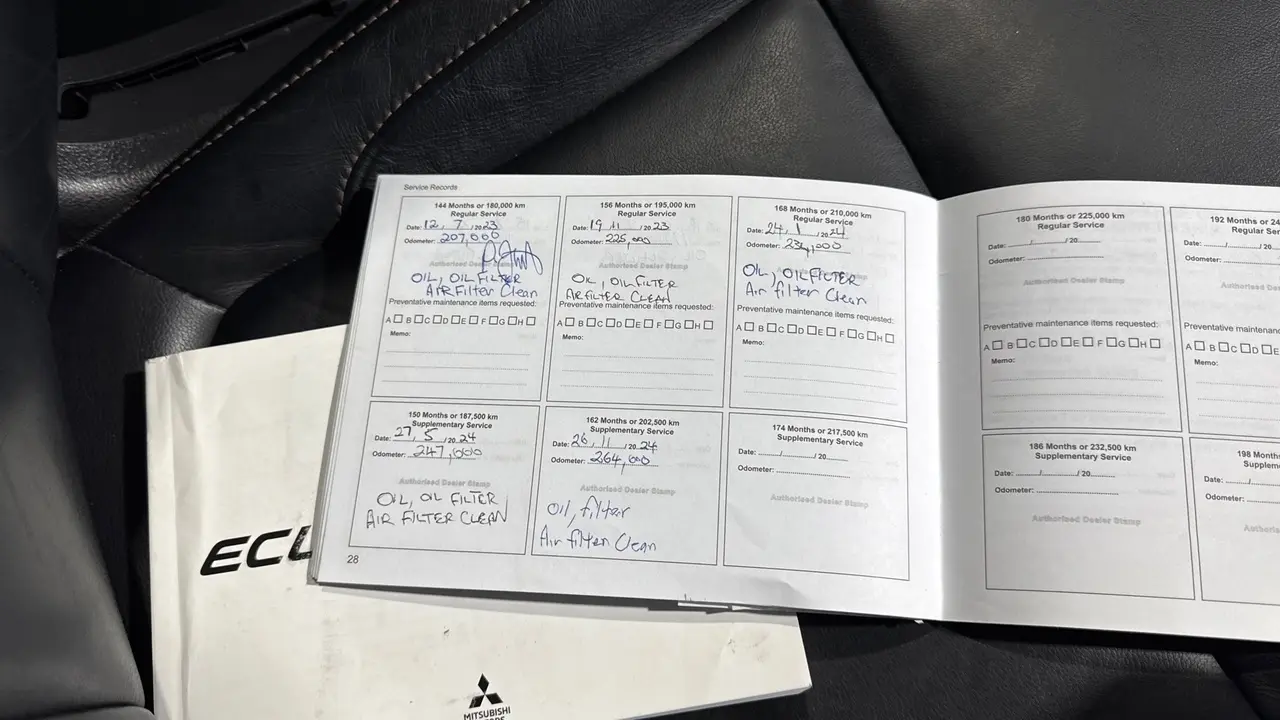 Service Records
144 Months or 180,000 km
Regular Service
Date: 12 / 7 / 2023
Odometer: 207,000
Authorised Dealer Stamp
OIL, OIL FILTER
AIR Filter Clean
Preventative maintenance items requested:
A B C D E F G H
Memo:
156 Months or 195,000 km
Regular Service
Date: 19 / 11 / 2023
Odometer: 225,000
Authorised Dealer Stamp
OIL, OIL FILTER
AIR FILTER CLEAN
Preventative maintenance items requested:
A B C D E F G H
Memo:
168 Months or 210,000 km
Regular Service
Date: 24 / 1 / 2024
Odometer: 234,000
Authorised Dealer Stamp
OIL, OIL FILTER
Air filter Clean
Preventative maintenance items requested:
A B C D E F G H
Memo:
150 Months or 187,500 km
Supplementary Service
Date: 27 / 5 / 2024
Odometer: 247,000
Authorised Dealer Stamp
OIL, OIL FILTER
AIR FILTER CLEAN
162 Months or 202,500 km
Supplementary Service
Date: 26 / 11 / 2024
Odometer: 264,000
Authorised Dealer Stamp
Oil, filter
Air filter Clean
174 Months or 217,500 km
Supplementary Service
Date: ....../....../ 20......
Odometer: ............
Authorised Dealer Stamp
28
180 Months or 225,000 km
Regular Service
Date: ....../....../ 20......
Odometer: ............
Authorised Dealer Stamp
Preventative maintenance items requested:
A B C D E F G H
Memo:
186 Months or 232,500 km
Supplementary Service
Date: ....../....../ 20......
Odometer: ............
Authorised Dealer Stamp
192 Months or 24
Regular Ser
Date: ....../....../
Odometer: ............
Authorised De
Preventative maintenanc
A B C D E
Memo:
198 Month
Supplem
Date: ....../
Odometer: ......
Authoris
ECL
MITSUBISHI